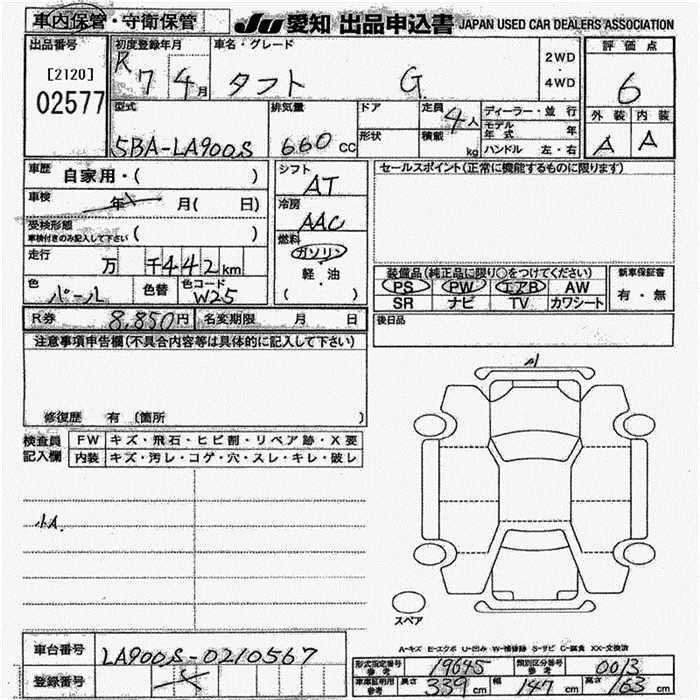 車内保管・守衛保管 JU 愛知 出品申込書 JAPAN USED CAR DEALERS ASSOCIATION
出品番号 [2120] 02577
初度登録年月 R 7 4月
車名・グレード タフト G
2WD・4WD
評価点 6
外装 内装
A A
型式 5BA-LA900S
排気量 660cc
ドア 形状
定員 4人
積載 kg
ディーラー・並行
モデル年式 年
ハンドル 左・右
車歴 自家用・( )
車検 年 月( 日)
受検形態 車検付きのみ記入して下さい ( )
走行 万 千442km
色 パール 色替 色コード W25
シフト AT
冷房 AAC
燃料 ガソリン
軽・油
( )
セールスポイント(正常に機能するものに限ります)
装備品(純正品に限り○をつけてください)
PS PW エアB AW
SR ナビ TV カワシート
新車保証書
有・無
R券 8,850円 名変期限 月 日
後日品
注意事項申告欄(不具合内容等は具体的に記入して下さい)
修復歴 有 〔箇所 〕
検査員記入欄
FW キズ・飛石・ヒビ割・リペア跡・X要
内装 キズ・汚レ・コゲ・穴・スレ・キレ・破レ
小A.
スペア
A-キズ E-エクボ U-凹み W-補修跡 S-サビ C-腐食 XX-交換済
車台番号 LA900S-0210567
登録番号
形式指定番号 参考 19645 類別区分番号 参考 0013
車庫証明用 参考 長さ 339cm 幅 147cm 高さ 163cm